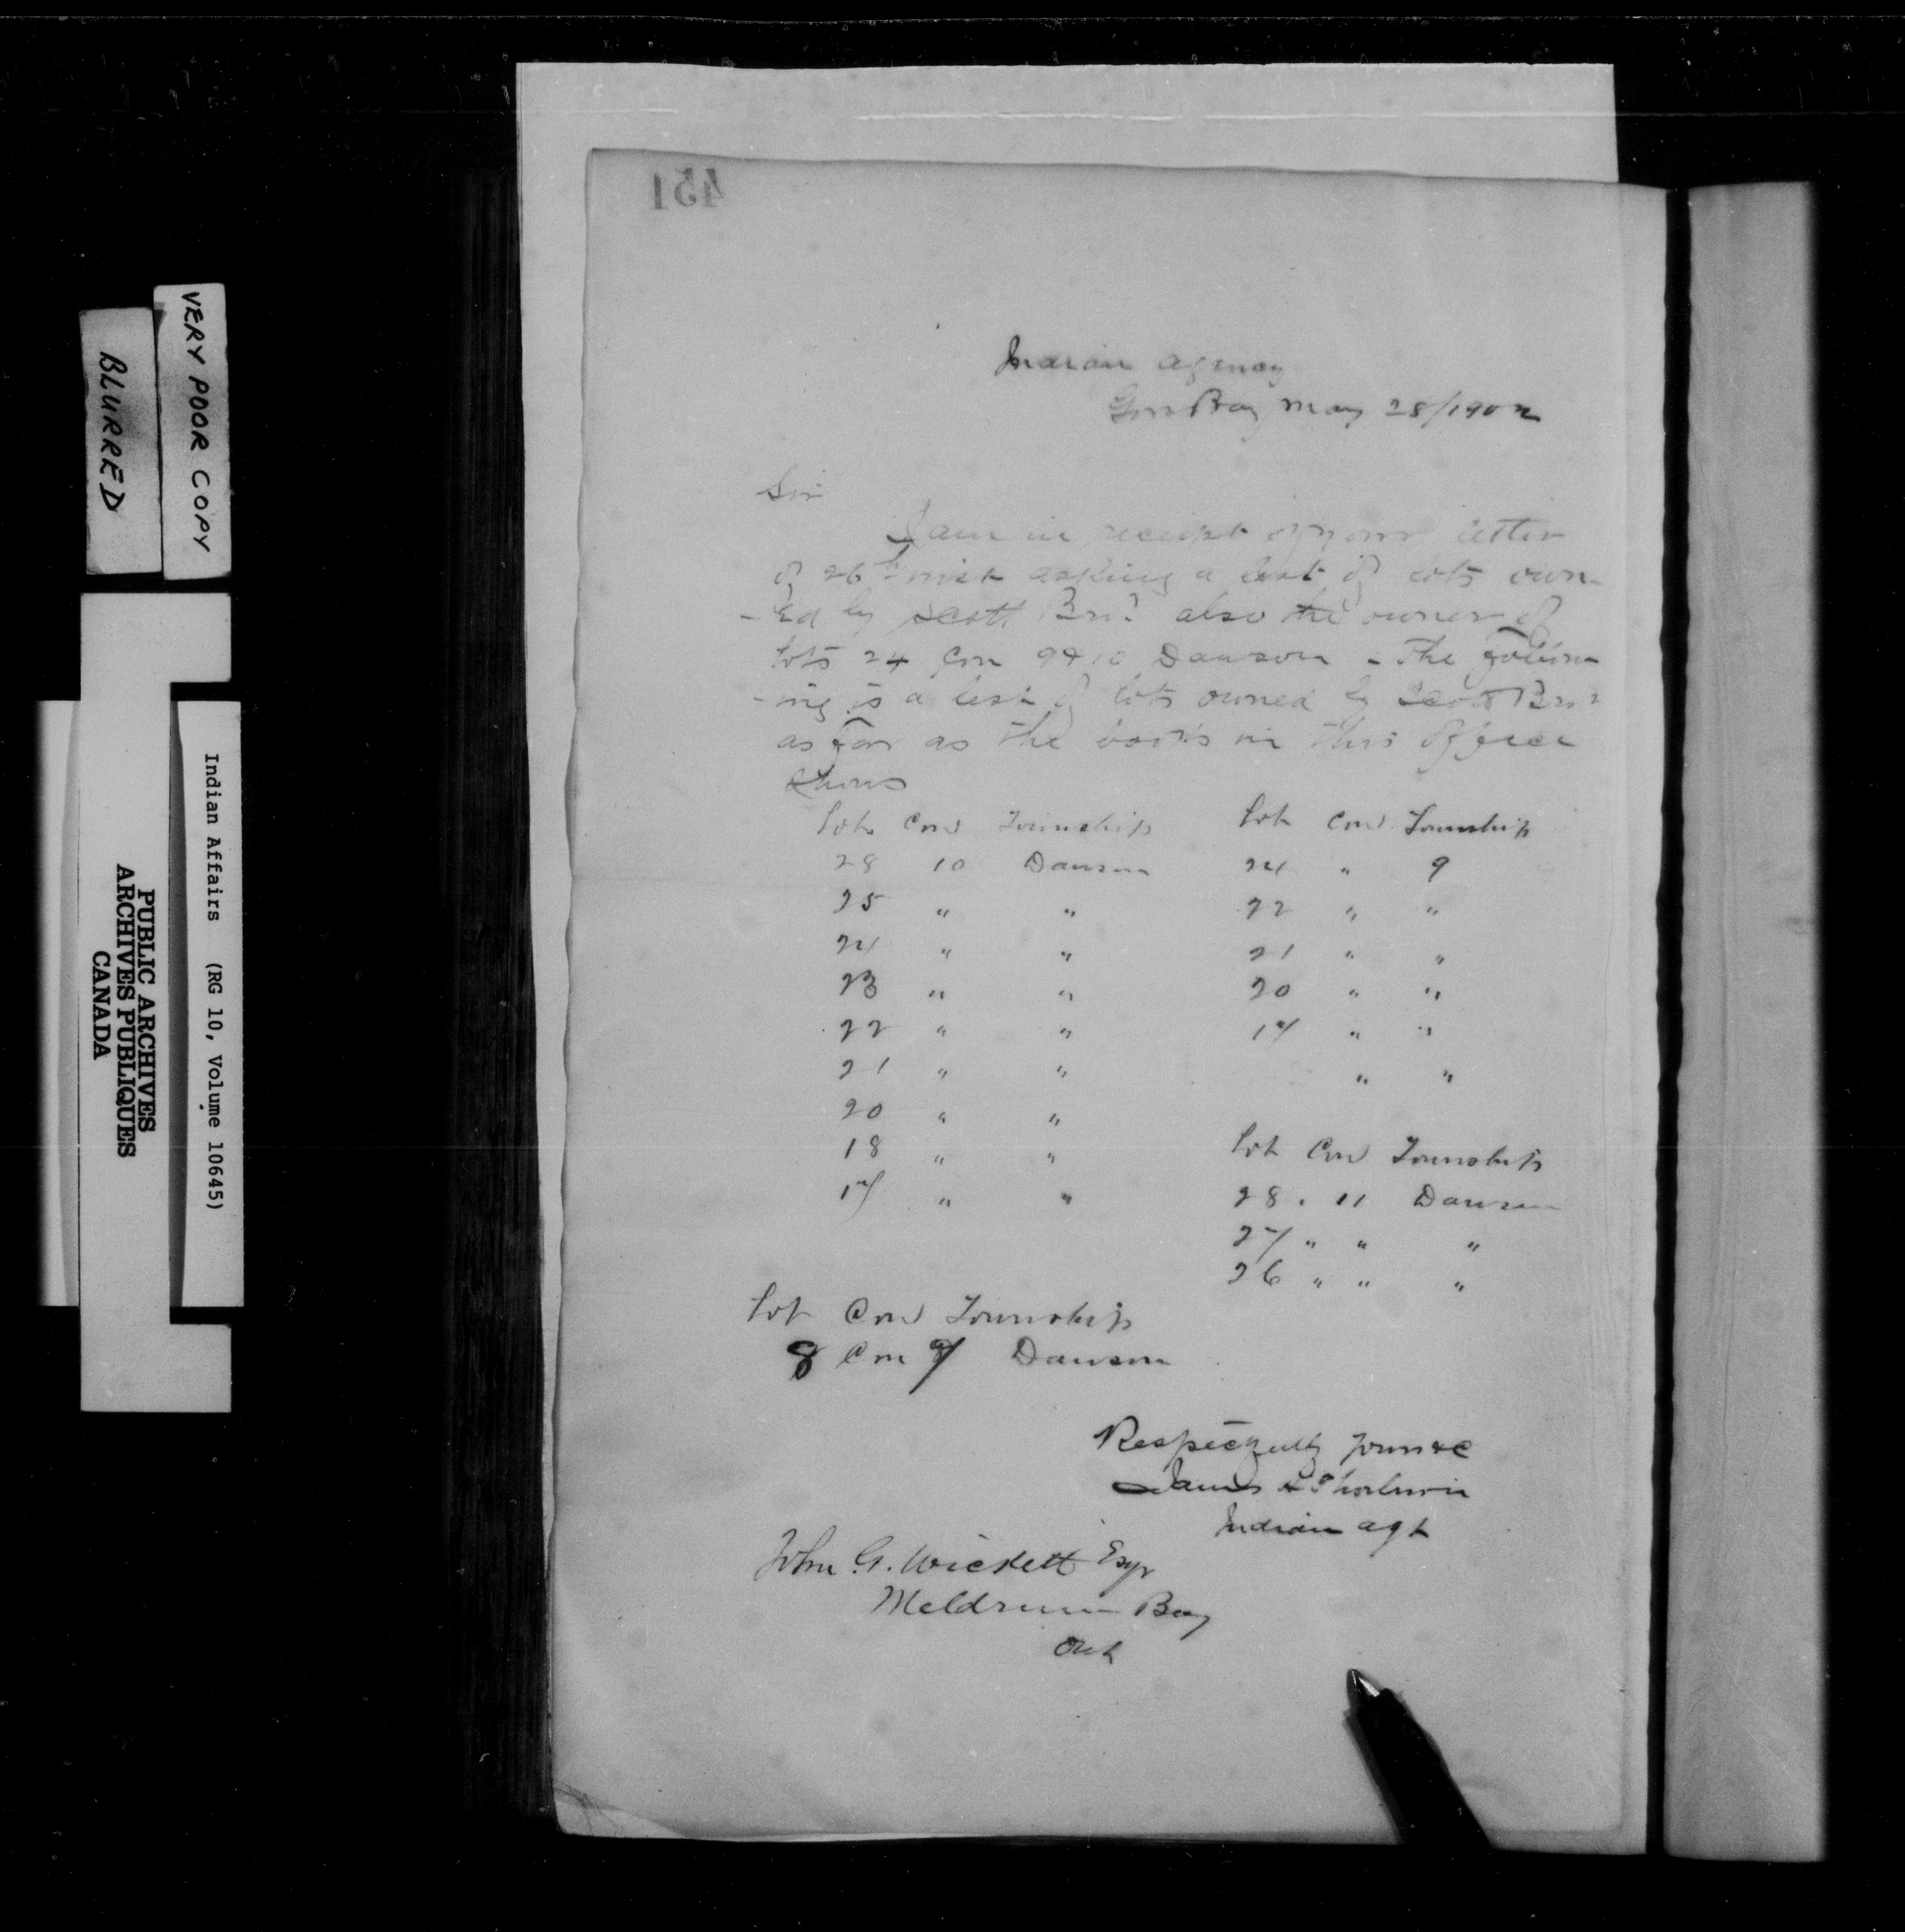 451
Indian Agency
Gore Bay May 28/1902
Sir
I am in receipt of your letter
of 26th inst asking a list of lots own-
-ed by Scott Bros also the owner of
lots 24 Con 9 & 10 Dawson - The follow-
-ing is a list of lots owned by Scott Bros
as far as the books in this office
shows
Lot Con Township Lot Con Township
28 10 Dawson 24 " 9
25 " " 22 " "
24 " " 21 " "
23 " " 20 " "
22 " " 17 " "
21 " " " "
20 " "
18 " " Lot Con Township
17 " " 28 . 11 Dawson
27 " " "
26 " " "
Lot Con Township
8 Con Dawson
Respectfully yours &c
James
Indian Agt
John G. Wickett Esqr
Meldrum Bay
Ont
VERY POOR COPY
BLURRED
Indian Affairs (RG 10, Volume 10645)
PUBLIC ARCHIVES
ARCHIVES PUBLIQUES
CANADA